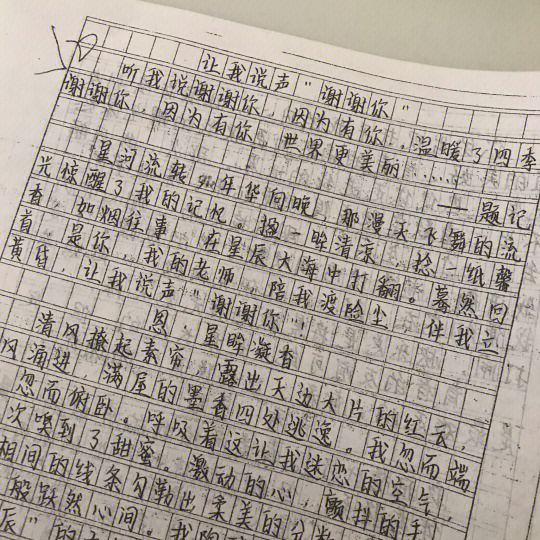 让我说声“谢谢你”
听我说谢谢你，因为有你，温暖了四季
谢谢你，因为有你，世界更美丽……
——题记
星河流转，年华向晚，那漫天飞舞的流
光惊醒了我的记忆。掬一眸清凉，捻一纸馨
香，如烟往事，在星辰大海中打翻。蓦然回
首，是你，我的老师，陪我渡险尘，伴我立
黄昏，让我说声“谢谢你”：
恩·星眸凝香
清风撩起素帘，露出天边大片的红云，
风涌进，满屋的墨香四处逃逸。我忽而端
忽而俯卧。呼吸着这让我迷恋的空气，
次嗅到了甜蜜。激动的心，颤抖的手
相间的线条勾勒出柔美的
般跃然心间。我
辰”的